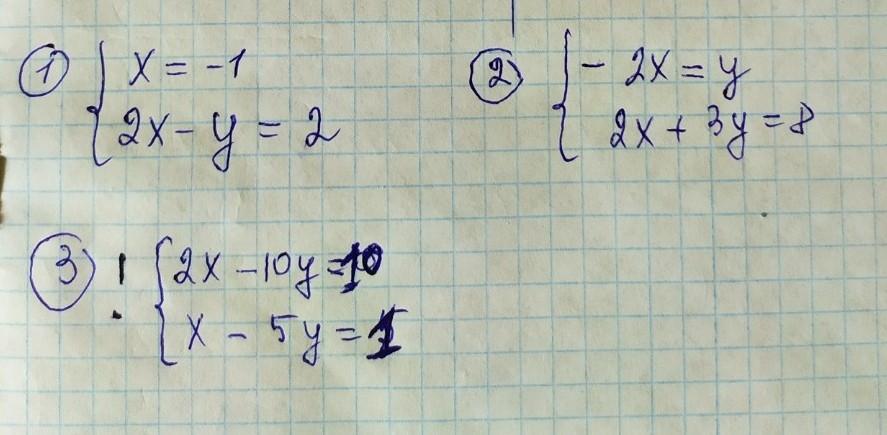 ① { x = -1
2x - y = 2
② { - 2x = y
2x + 3y = 8
③ ! { 2x - 10y = 10
x - 5y =